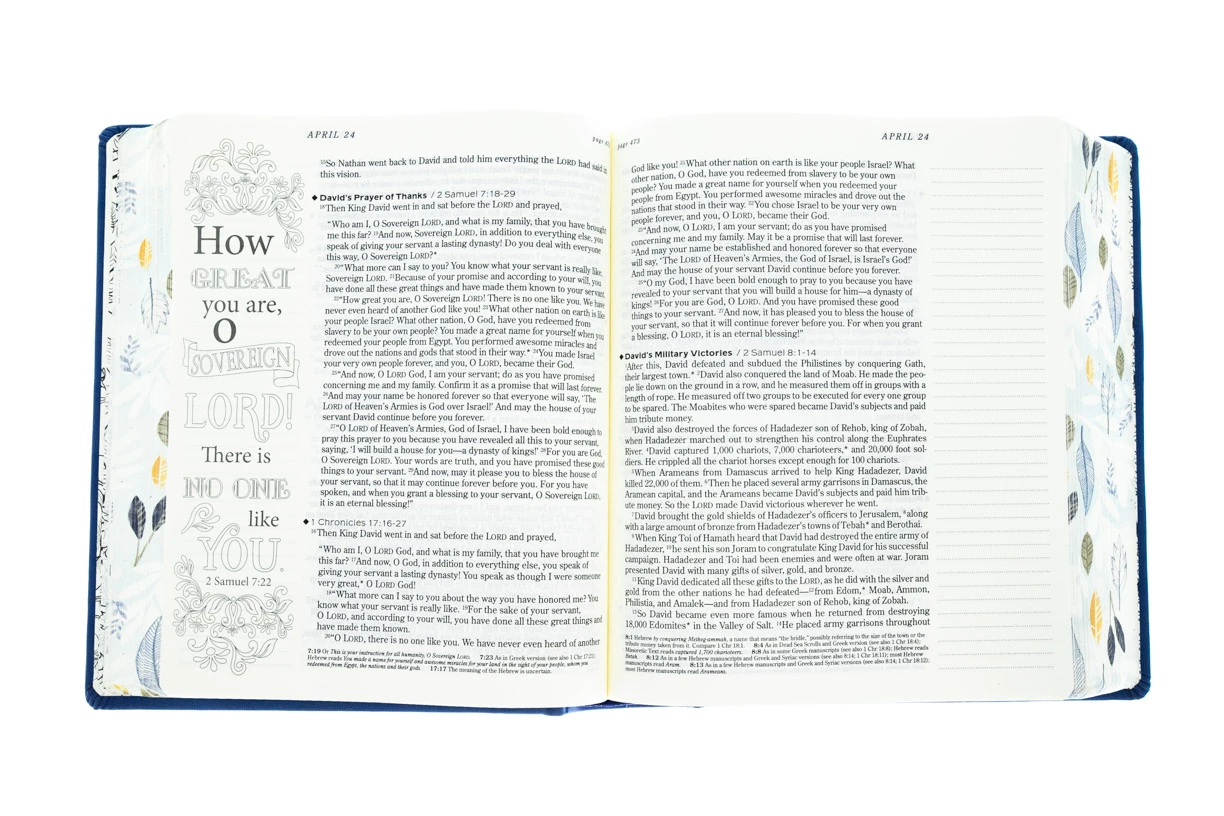 How
GREAT
you are,
O
SOVEREIGN
LORD!
There is
NO ONE
like
YOU.
2 Samuel 7:22
APRIL 24
page
¹⁷So Nathan went back to David and told him everything the LORD had said in
this vision.
◆ David's Prayer of Thanks / 2 Samuel 7:18-29
¹⁸Then King David went in and sat before the LORD and prayed,
"Who am I, O Sovereign LORD, and what is my family, that you have brought
me this far? ¹⁹And now, Sovereign LORD, in addition to everything else, you
speak of giving your servant a lasting dynasty! Do you deal with everyone
this way, O Sovereign LORD?*
²⁰"What more can I say to you? You know what your servant is really like,
Sovereign LORD. ²¹Because of your promise and according to your will, you
have done all these great things and have made them known to your servant.
²²"How great you are, O Sovereign LORD! There is no one like you. We have
never even heard of another God like you! ²³What other nation on earth is like
your people Israel? What other nation, O God, have you redeemed from
slavery to be your own people? You made a great name for yourself when you
redeemed your people from Egypt. You performed awesome miracles and
drove out the nations and gods that stood in their way.* ²⁴You made Israel
your very own people forever, and you, O LORD, became their God.
²⁵"And now, O LORD God, I am your servant; do as you have promised
concerning me and my family. Confirm it as a promise that will last forever.
²⁶And may your name be honored forever so that everyone will say, 'The
LORD of Heaven's Armies is God over Israel!' And may the house of your
servant David continue before you forever.
²⁷"O LORD of Heaven's Armies, God of Israel, I have been bold enough to
pray this prayer to you because you have revealed all this to your servant,
saying, 'I will build a house for you—a dynasty of kings!' ²⁸For you are God,
O Sovereign LORD. Your words are truth, and you have promised these good
things to your servant. ²⁹And now, may it please you to bless the house of
your servant, so that it may continue forever before you. For you have
spoken, and when you grant a blessing to your servant, O Sovereign LORD,
it is an eternal blessing!"
◆ 1 Chronicles 17:16-27
¹⁶Then King David went in and sat before the LORD and prayed,
"Who am I, O LORD God, and what is my family, that you have brought me
this far? ¹⁷And now, O God, in addition to everything else, you speak of
giving your servant a lasting dynasty! You speak as though I were someone
very great,* O LORD God!
¹⁸"What more can I say to you about the way you have honored me? You
know what your servant is really like. ¹⁹For the sake of your servant,
O LORD, and according to your will, you have done all these great things and
have made them known.
²⁰"O LORD, there is no one like you. We have never even heard of another
7:19 Or This is your instruction for all humanity, O Sovereign LORD. 7:23 As in Greek version (see also 1 Chr 17:21);
Hebrew reads You made a name for yourself and awesome miracles for your land in the sight of your people, whom you
redeemed from Egypt, the nations and their gods. 17:17 The meaning of the Hebrew is uncertain.
page 473
APRIL 24
God like you! ²¹What other nation on earth is like your people Israel? What
other nation, O God, have you redeemed from slavery to be your own
people? You made a great name for yourself when you redeemed your
people from Egypt. You performed awesome miracles and drove out the
nations that stood in their way. ²²You chose Israel to be your very own
people forever, and you, O LORD, became their God.
²³"And now, O LORD, I am your servant; do as you have promised
concerning me and my family. May it be a promise that will last forever.
²⁴And may your name be established and honored forever so that everyone
will say, 'The LORD of Heaven's Armies, the God of Israel, is Israel's God!'
And may the house of your servant David continue before you forever.
²⁵"O my God, I have been bold enough to pray to you because you have
revealed to your servant that you will build a house for him—a dynasty of
kings! ²⁶For you are God, O LORD. And you have promised these good
things to your servant. ²⁷And now, it has pleased you to bless the house of
your servant, so that it will continue forever before you. For when you grant
a blessing, O LORD, it is an eternal blessing!"
◆ David's Military Victories / 2 Samuel 8:1-14
¹After this, David defeated and subdued the Philistines by conquering Gath,
their largest town.* ²David also conquered the land of Moab. He made the peo-
ple lie down on the ground in a row, and he measured them off in groups with a
length of rope. He measured off two groups to be executed for every one group
to be spared. The Moabites who were spared became David's subjects and paid
him tribute money.
³David also destroyed the forces of Hadadezer son of Rehob, king of Zobah,
when Hadadezer marched out to strengthen his control along the Euphrates
River. ⁴David captured 1,000 chariots, 7,000 charioteers,* and 20,000 foot sol-
diers. He crippled all the chariot horses except enough for 100 chariots.
⁵When Arameans from Damascus arrived to help King Hadadezer, David
killed 22,000 of them. ⁶Then he placed several army garrisons in Damascus, the
Aramean capital, and the Arameans became David's subjects and paid him trib-
ute money. So the LORD made David victorious wherever he went.
⁷David brought the gold shields of Hadadezer's officers to Jerusalem, ⁸along
with a large amount of bronze from Hadadezer's towns of Tebah* and Berothai.
⁹When King Toi of Hamath heard that David had destroyed the entire army of
Hadadezer, ¹⁰he sent his son Joram to congratulate King David for his successful
campaign. Hadadezer and Toi had been enemies and were often at war. Joram
presented David with many gifts of silver, gold, and bronze.
¹¹King David dedicated all these gifts to the LORD, as he did with the silver and
gold from the other nations he had defeated—¹²from Edom,* Moab, Ammon,
Philistia, and Amalek—and from Hadadezer son of Rehob, king of Zobah.
¹³So David became even more famous when he returned from destroying
18,000 Edomites* in the Valley of Salt. ¹⁴He placed army garrisons throughout
8:1 Hebrew by conquering Metheg-ammah, a name that means "the bridle," possibly referring to the size of the town or the
tribute money taken from it. Compare 1 Chr 18:1. 8:4 As in Dead Sea Scrolls and Greek version (see also 1 Chr 18:4);
Masoretic Text reads captured 1,700 charioteers. 8:8 As in some Greek manuscripts (see also 1 Chr 18:8); Hebrew reads
Betah. 8:12 As in a few Hebrew manuscripts and Greek and Syriac versions (see also 8:14; 1 Chr 18:11); most Hebrew
manuscripts read Aram. 8:13 As in a few Hebrew manuscripts and Greek and Syriac versions (see also 8:14; 1 Chr 18:12);
most Hebrew manuscripts read Arameans.